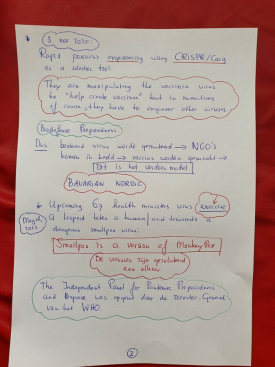 * 3 nov 2020
Rapid poxvirus engineering using CRISPR/Cas9
as a selection tool
They are manipulating the vaccinia virus
to "help create vaccines" but in meantime
of course, they have to engineer other viruses
Biodefense Preparedness
Dus: bestaand virus wordt gemanipuleerd → NGO's
komen in beeld → vaccins worden gemaakt →
Dit is het verdien model
BAVARIAN NORDIC
* Upcoming G7 health ministers virus exercise
May 19, 2022
A leopard bites a human and transmits a
dangerous smallpox virus.
Smallpox is a version of MonkeyPox
De virussen zijn gerelateerd
aan elkaar
The Independent Panel for Pandemic Preparedness
and Response was opgezet door de Director-General
van het WHO.
2